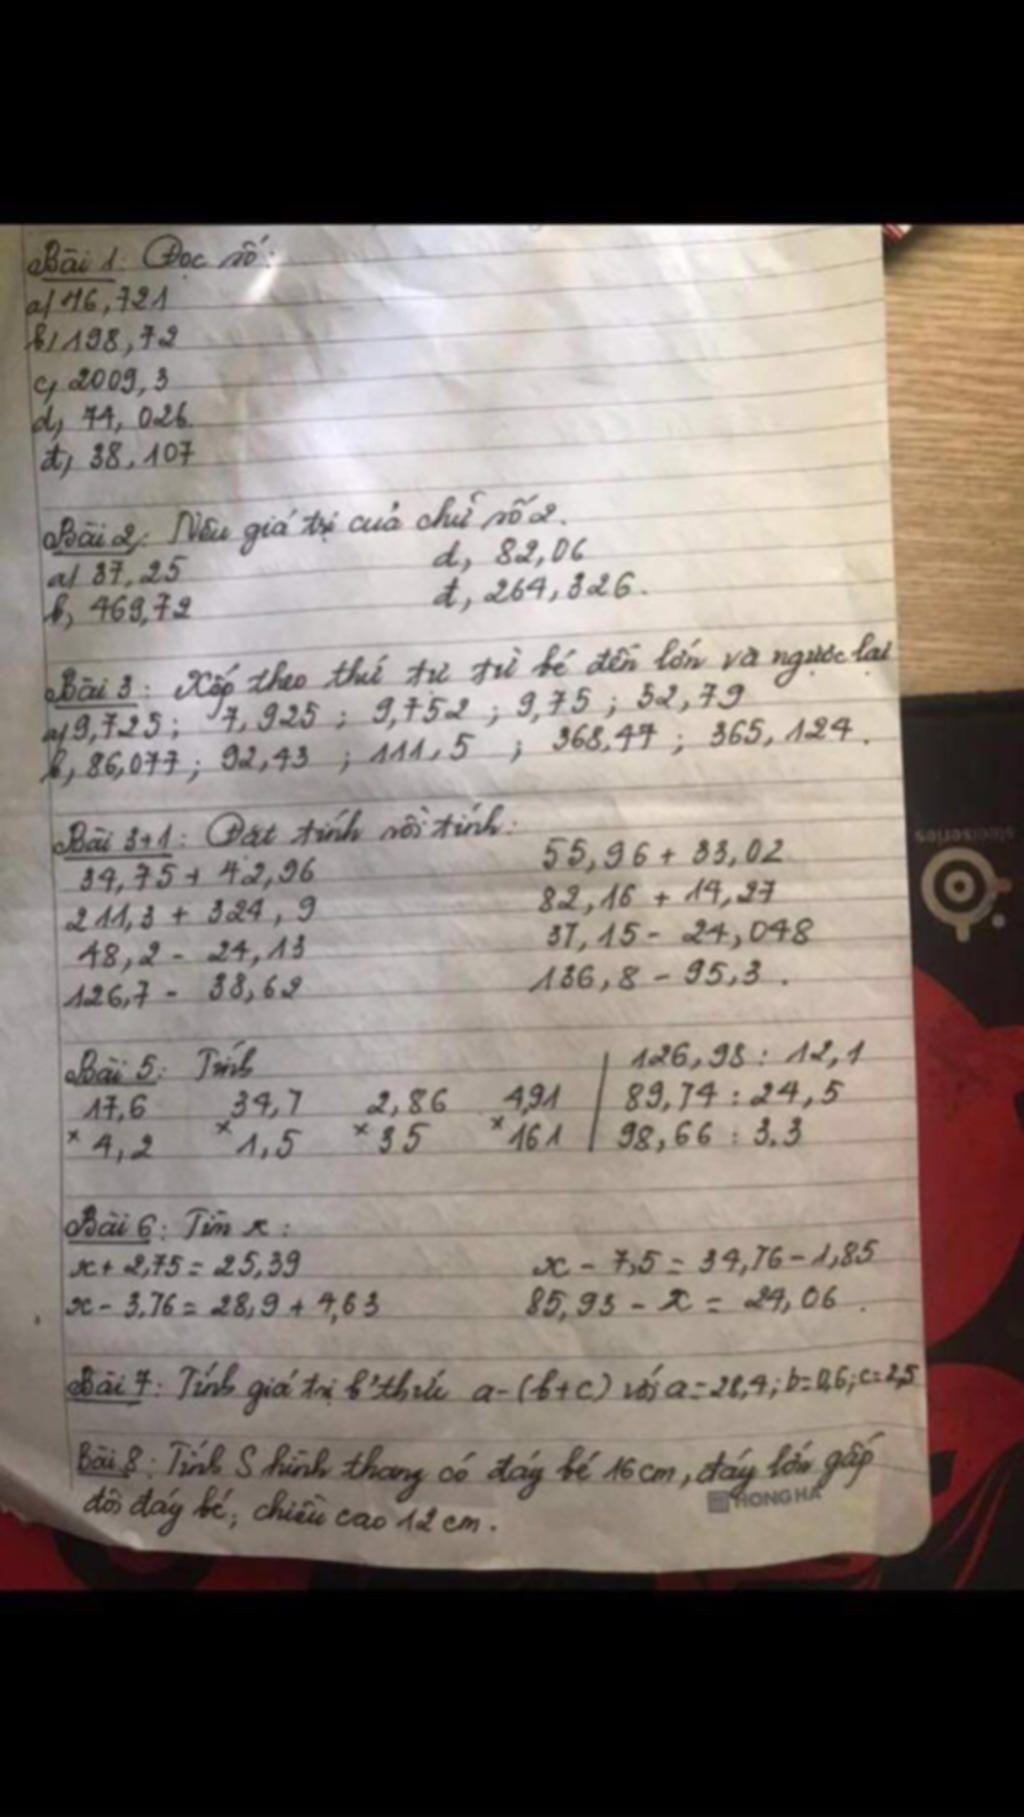 Bài 1: Đọc số:
a) 46,721
b) 198,72
c, 2009,3
d, 74, 026
đ, 38,107
Bài 2: Nêu giá trị của chữ số 2.
a) 37,25 d, 82,06
b, 469,72 đ, 264,326.
Bài 3: Xếp theo thứ tự từ bé đến lớn và ngược lại
a) 9,725; 7,925; 9,752; 9,75; 52,79
b, 86,077; 92,43; 111,5; 368,47; 365,124.
Bài 3+1: Đặt tính rồi tính:
34,75 + 42,96 55,96 + 33,02
211,3 + 324,9 82,16 + 14,27
48,2 - 24,13 37,15 - 24,048
126,7 - 38,62 136,8 - 95,3.
Bài 5: Tính 126,98 : 12,1
17,6 34,7 2,86 4,91 89,74 : 24,5
× 4,2 × 1,5 × 35 × 161 98,66 : 3.3
Bài 6: Tìm x:
x + 2,75 = 25,39 x - 7,5 = 34,76 - 1,85
x - 3,76 = 28,9 + 4,63 85,93 - x = 24,06.
Bài 7: Tính giá trị b' thức a - (b+c) với a = 28,4; b = 0,6; c = 2,5
Bài 8: Tính S hình thang có đáy bé 16cm, đáy lớn gấp
đôi đáy bé, chiều cao 12 cm.
HONG HA
steelseries